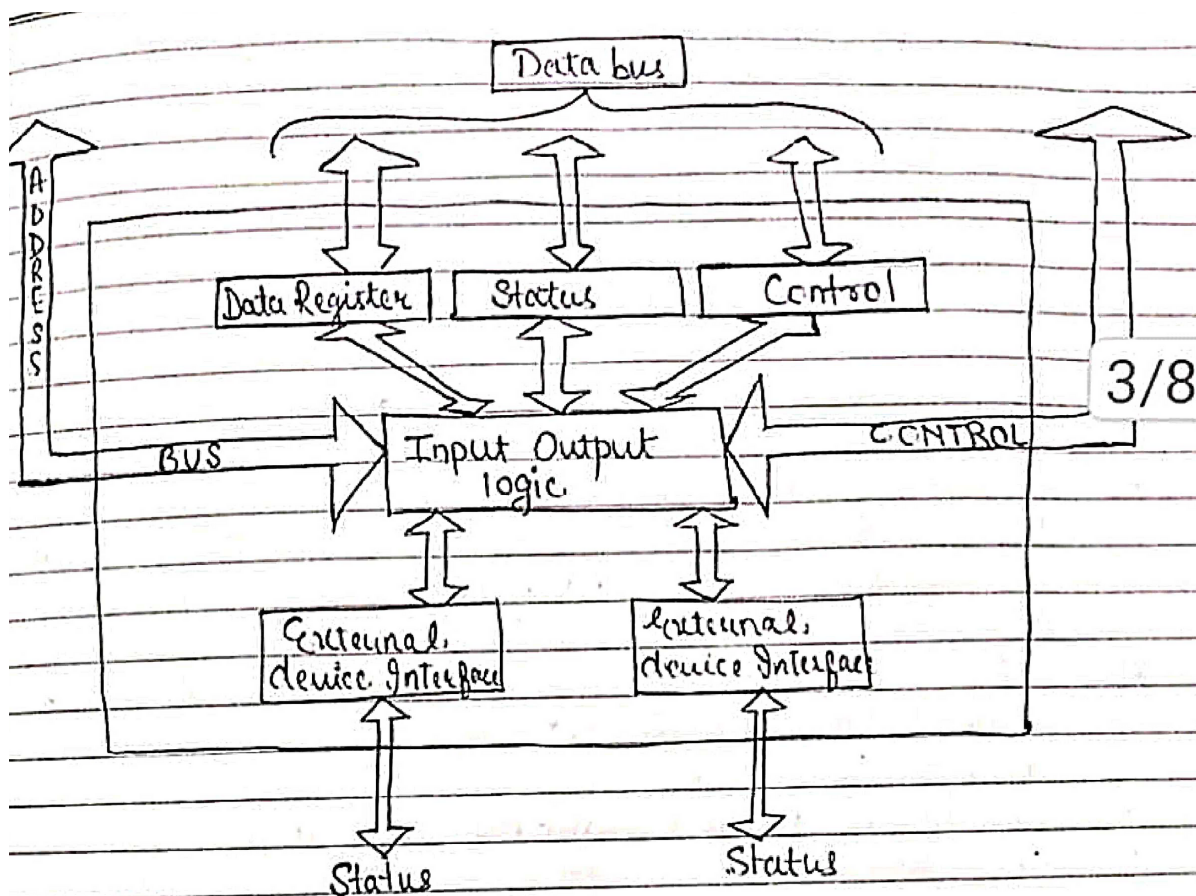 Data bus
ADDRESS
Data Register
Status
Control
3/8
BUS
Input Output
logic
CONTROL
External
device Interface
External
device Interface
Status
Status